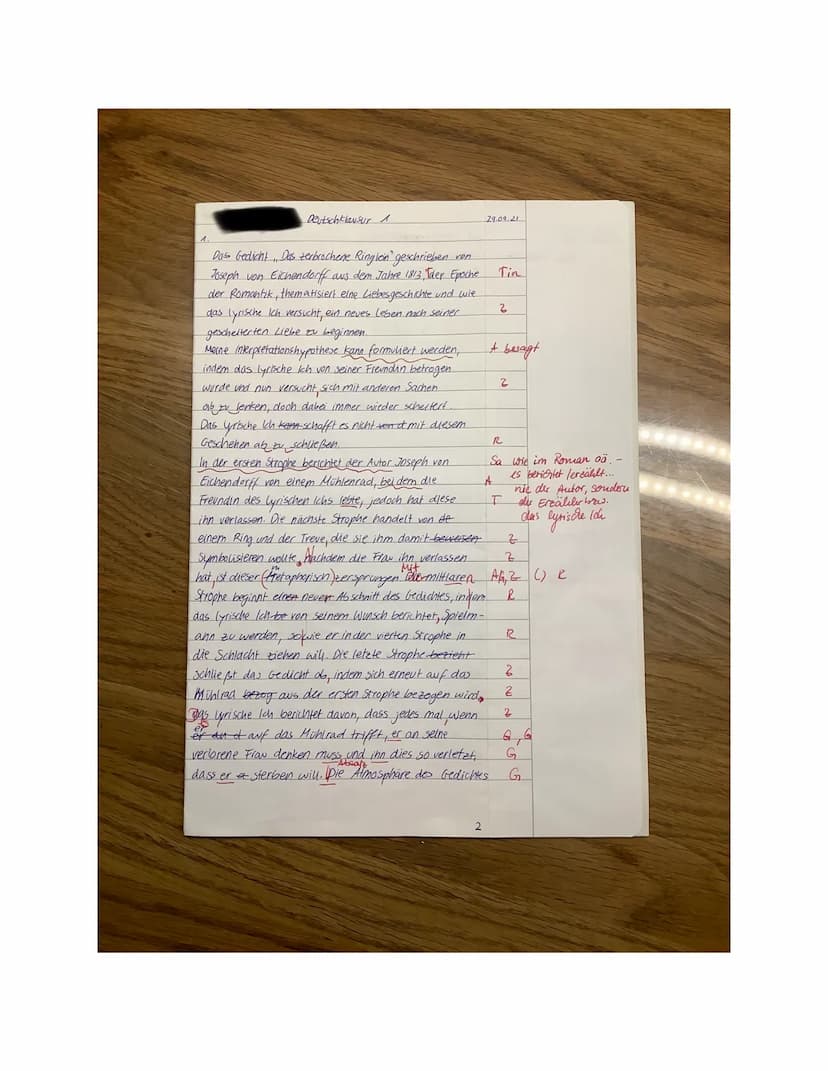 Deutschklausur 1 29.09.21
1.
Das Gedicht „Das zerbrochene Ringlein" geschrieben von
Joseph von Eichendorff aus dem Jahre 1813, der Epoche T in
der Romantik, thematisiert eine Liebesgeschichte und wie
das lyrische Ich versucht, ein neues Leben nach seiner Z
gescheiterten Liebe zu beginnen.
Meine Interpretationshypothese kann formuliert werden, A besagt
indem das lyrische Ich von seiner Freundin betrogen
wurde und nun versucht, sich mit anderen Sachen Z
ab zu lenken, doch dabei immer wieder scheitert.
Das lyrische Ich kann schafft es nicht mit diesem
Geschehen ab zu schließen. R
In der ersten Strophe berichtet der Autor Joseph von Sa wie im Roman oä. –
Eichendorff von einem Mühlenrad, bei dem die A es berichtet/erzählt...
nie der Autor, sondern
Freundin des lyrischen Ichs lebte, jedoch hat diese T der Erzähler bzw.
ihn verlassen. Die nächste Strophe handelt von das lyrische Ich
einem Ring und der Treue, die sie ihm damit beweisen Z
symbolisieren wollte. Nachdem die Frau ihn verlassen Z
hat, ist dieser (metapherisch) zersprungen. Mit der mittlaren A, Z () R
Strophe beginnt einen neuer Abschnitt des Gedichtes, indem R
das lyrische Ich von seinem Wunsch berichtet, Spielm-
ann zu werden, sowie er in der vierten Strophe in R
die Schlacht ziehen will. Die letzte Strophe bezieht
schließt das Gedicht ab, indem sich erneut auf das Z
Mühlrad bezog aus der ersten Strophe bezogen wird. Z
Das lyrische Ich berichtet davon, dass jedes mal, wenn Z
es
er auf das Mühlrad trifft, er an seine G, G
verlorene Frau denken muss und ihn dies so verletzt, G
Absatz
dass er sterben will. Die Atmosphäre des Gedichtes G
2